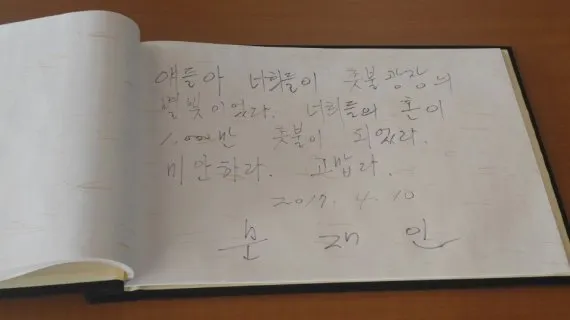 얘들아 너희들이 촛불광장의
별빛이었다. 너희들의 혼이
1,000만 촛불이 되었다.
미안하다. 고맙다.
2017. 4. 10
문 재 인